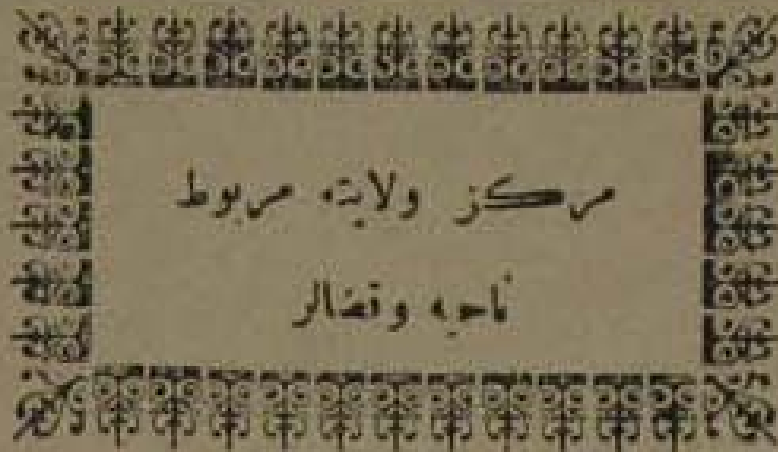 مركز ولايته مربوط
ناحيه وقضالر